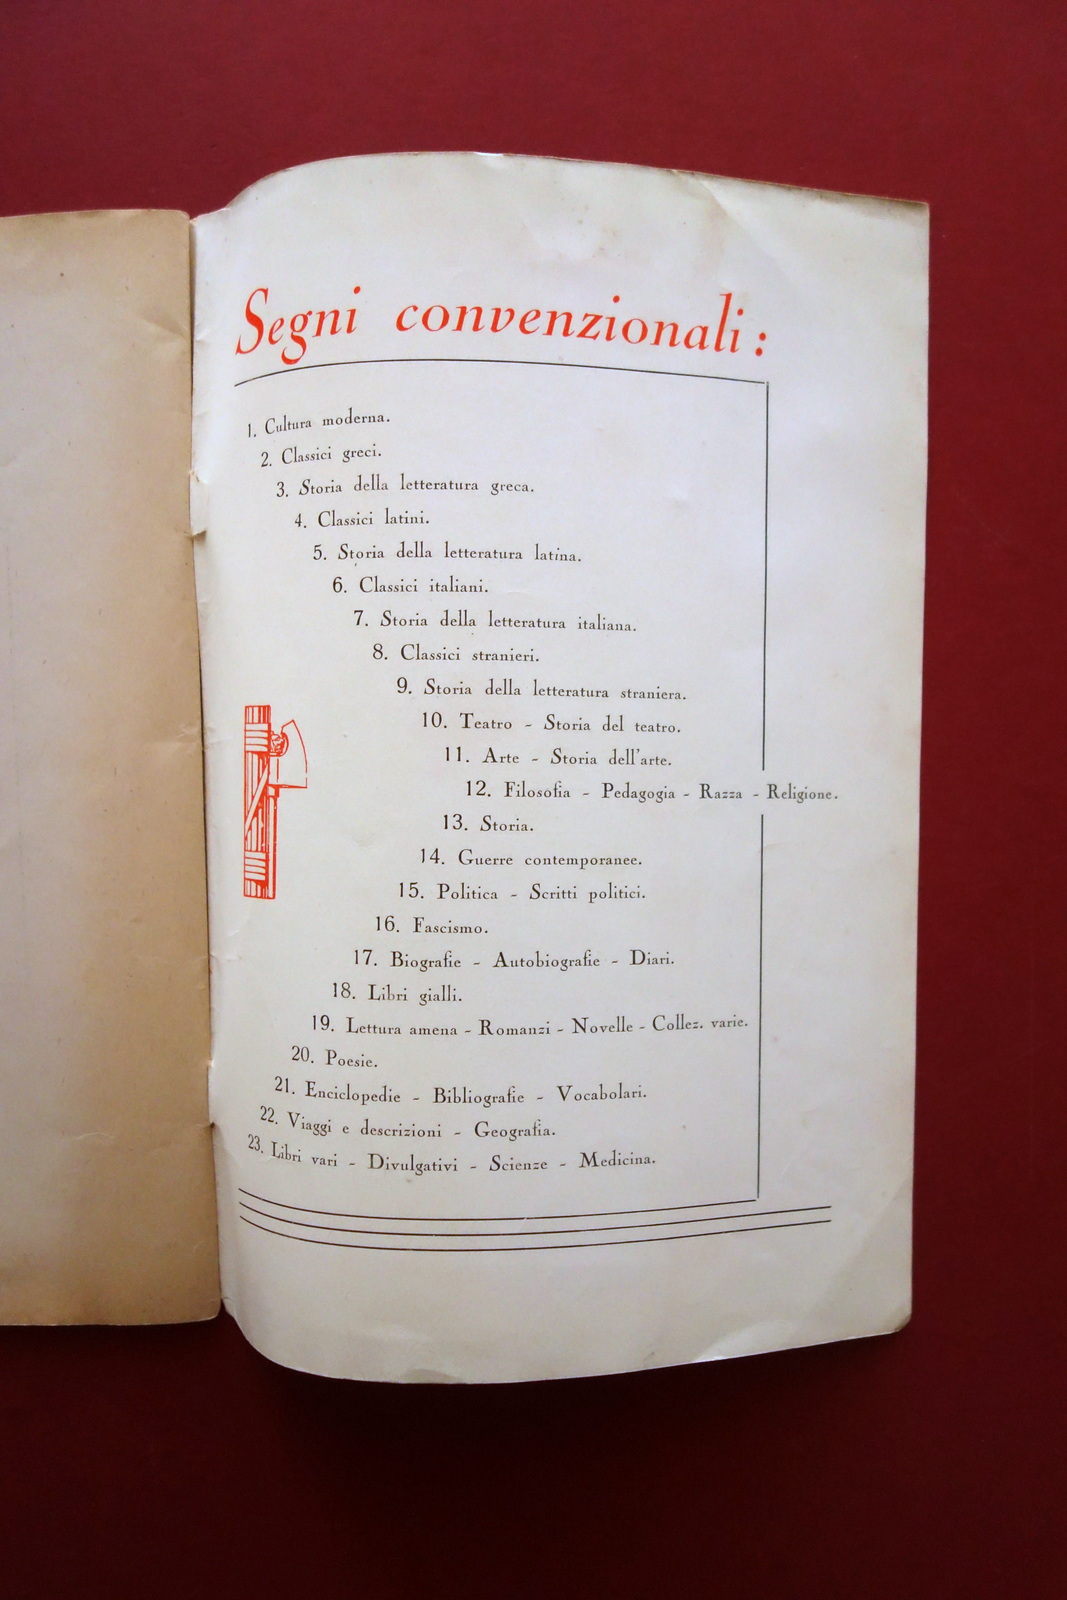 Segni convenzionali:
1. Cultura moderna.
2. Classici greci.
3. Storia della letteratura greca.
4. Classici latini.
5. Storia della letteratura latina.
6. Classici italiani.
7. Storia della letteratura italiana.
8. Classici stranieri.
9. Storia della letteratura straniera.
10. Teatro - Storia del teatro.
11. Arte - Storia dell'arte.
12. Filosofia - Pedagogia - Razza - Religione.
13. Storia.
14. Guerre contemporanee.
15. Politica - Scritti politici.
16. Fascismo.
17. Biografie - Autobiografie - Diari.
18. Libri gialli.
19. Lettura amena - Romanzi - Novelle - Collez. varie.
20. Poesie.
21. Enciclopedie - Bibliografie - Vocabolari.
22. Viaggi e descrizioni - Geografia.
23. Libri vari - Divulgativi - Scienze - Medicina.